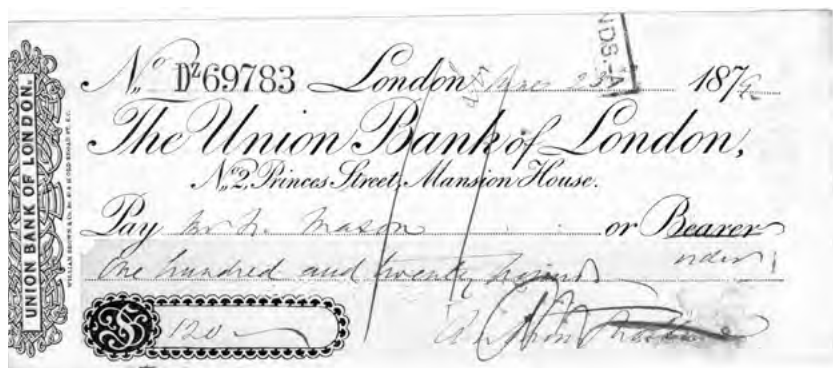 UNION BANK OF LONDON.
NDS. A
No. Dz 69783 London 23 187
The Union Bank of London,
No. 2, Princes Street, Mansion House.
Pay Mr Mason or Bearer
order
One hundred and twenty
£ 120